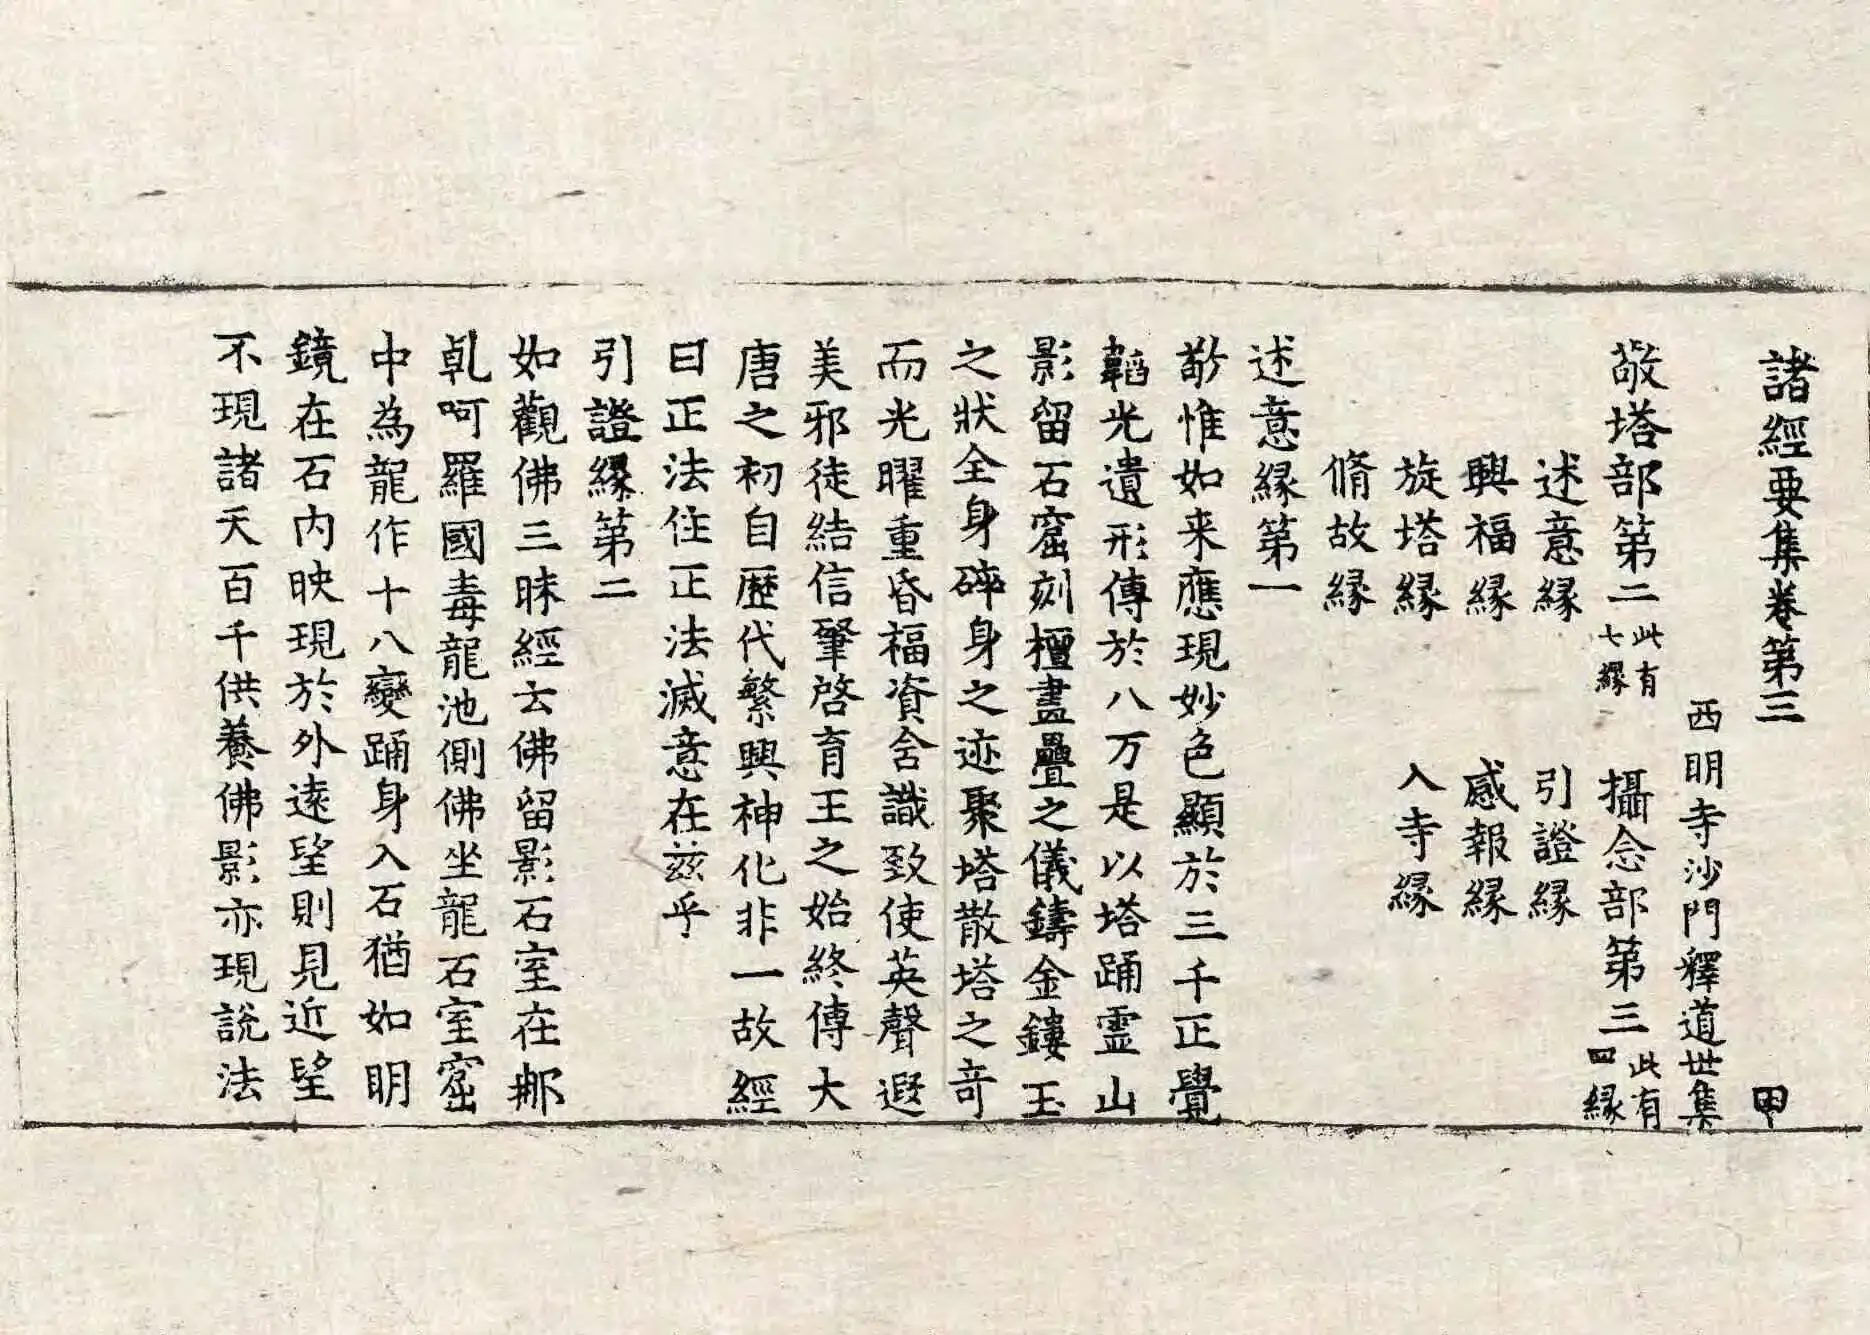 諸經要集卷第三 甲
西明寺沙門釋道世集
敬塔部第二 此有七緣 攝念部第三 此有四緣
述意緣 引證緣
興福緣 感報緣
旋塔緣 入寺緣
脩故緣
述意緣第一
敬惟如来應現妙色顯於三千正覺
韜光遺形傳於八万是以塔踊靈山
影留石窟刻檀畫疊之儀鑄金鏤玉
之狀全身碎身之迹聚塔散塔之奇
而光曜重昏福資含識致使英聲遐
美邪徒結信肇啓育王之始終傳大
唐之初自歷代繁興神化非一故經
曰正法住正法滅意在兹乎
引證緣第二
如觀佛三昧經云佛留影石室在那
乹呵羅國毒龍池側佛坐龍石室窟
中為龍作十八變踊身入石猶如明
鏡在石内映現於外遠望則見近望
不現諸天百千供養佛影亦現說法